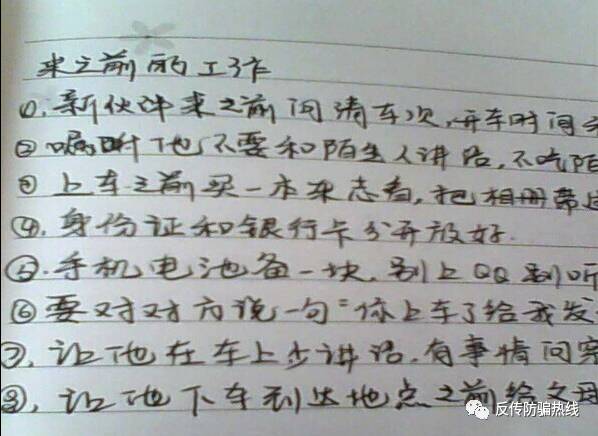 来之前的工作
①、新伙伴来之前问清车次,开车时间
②嘱咐他不要和陌生人讲话,不吃陌
③上车之前买一本杂志看,把相册带
④、身份证和银行卡分开放好.
⑤、手机电池备一块,别上QQ别听
⑥要对对方说一句"你上车了给我发
⑦、让他在车上少讲话,有事情问
⑧、让他下车到达地点之前给
反传防骗热线